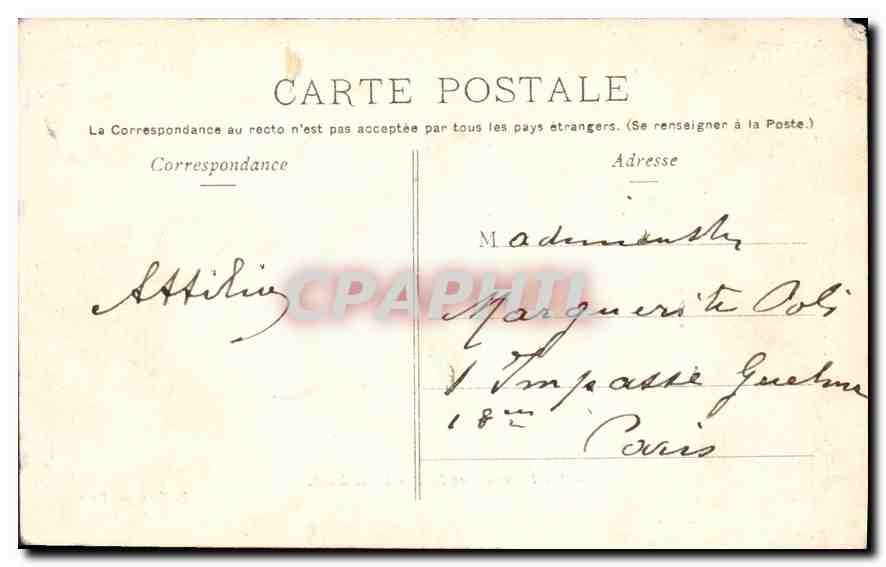 CARTE POSTALE
La Correspondance au recto n'est pas acceptée par tous les pays étrangers. (Se renseigner à la Poste.)
Correspondance
Adresse
Attilio
CPAPHIL
Mademoiselle
Marguerite Poli
1 Impasse Guelma
18me
Paris